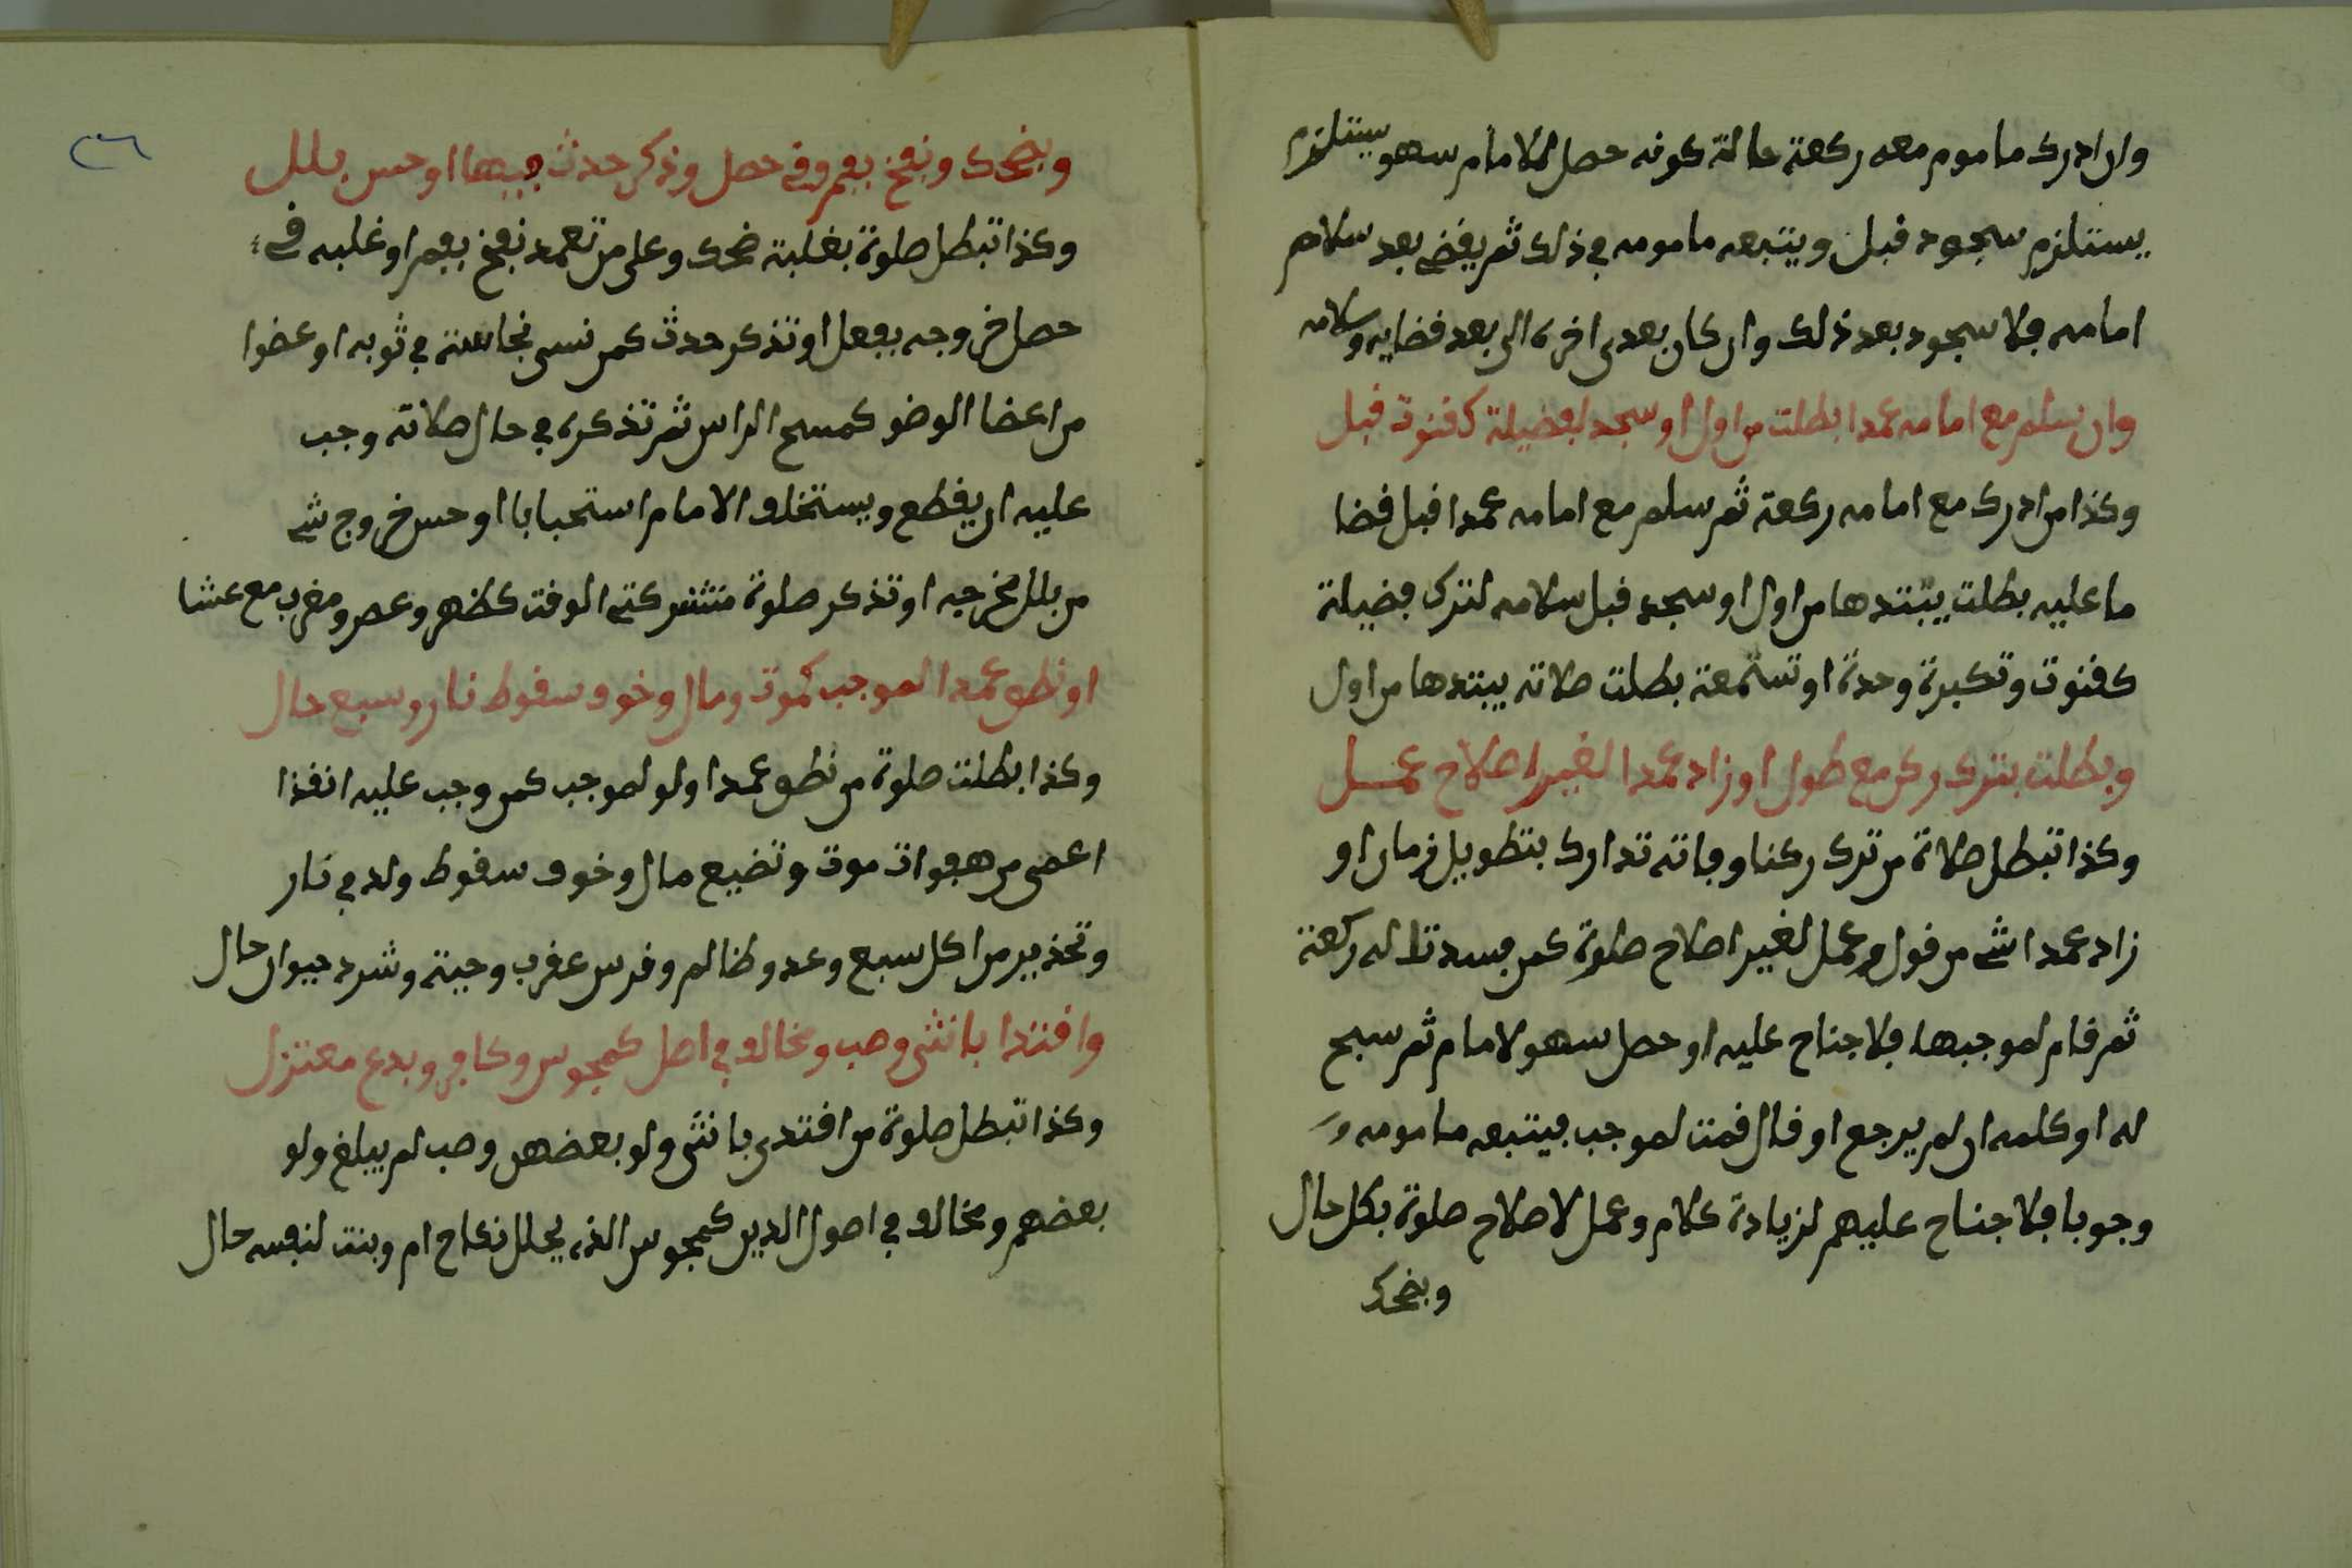 وان ادرك ماموم معه ركعة حالة كونه حصل للامام سهو يستلزم
يستلزم سجود قبل ويتبعه مامومه في ذلك ثم يقضي بعد سلام
امامه فلا سجود بعد ذلك وان كان بعدى اخره الى بعد قضايه وسلامه
وان سلم مع امامه عمدا بطلت من اول او سجد لفضيلة كقنوت قبل
وكذا من ادرك مع امامه ركعة ثم سلم مع امامه عمدا قبل قضا
ما عليه بطلت يبتدها من اول او سجد قبل سلامه لترك فضيلة
كقنوت وتكبرة وحدة او تسمعة بطلت صلاته يبتدها من اول
وبطلت بترك ركن مع طول او زاد عمدا لغير اصلاح عمل
وكذا تبطل صلاة من ترك ركنا وفاته تدارك بتطويل زمان او
زاد عمدا شي من قول وعمل لغير اصلاح صلوة كمن فسدت له ركعة
ثم قام لموجبها فلا جناح عليه او حصل سهو لامام ثم سبح
له او كلمه ان لم يرجع او قال قمت لموجب فيتبعه مامومه
وجوبا فلا جناح عليهم لزيادة كلام وعمل لاصلاح صلوة بكل حال
وبضحك
٢٦
وبضحك ونفخ بفم وقي حصل وذكر حدث فيها او حس بلل
وكذا تبطل صلوة بغلبة ضحك وعلى من تعمد نفخ بفم او غلبه قي
حصل خروجه بفعل او تذكر حدث كمن نسى نجاسة في ثوبه او عضوا
من اعضا الوضو كمسح الراس ثم تذكره في حال صلاته وجب
عليه ان يقطع ويستخلف الامام استحبابا او حس خروج شي
من بلل مخرجيه او تذكر صلوة مشتركتي الوقت كظهر وعصر ومغرب مع عشا
او نطق عمدا لموجب كموت ومال وخوف سقوط نار وسبع حال
وكذا بطلت صلوة من نطق عمدا ولو لموجب كمن وجب عليه انقذا
اعمى من هفوات موت وتضيع مال وخوف سقوط ولد في نار
وتحذير من اكل سبع وعدو ظالم وقرس عقرب وحية وشرد حيوان حال
واقتدا بانثى وصب ومخالف في اصل كمجوس وكافر وبدع معتزل
وكذا تبطل صلوة من اقتدى بانثى ولو بعضهن وصب لم يبلغ ولو
بعضهم ومخالف في اصول الدين كمجوس الذي يحلل نكاح ام وبنت لنفسه حال